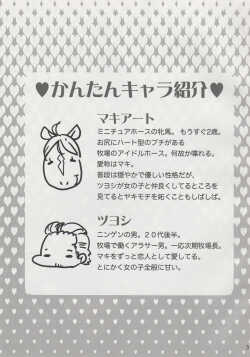 ♥かんたんキャラ紹介♥
マキアート
ミニチュアホースの牝馬。もうすぐ2歳。
お尻にハート型のブチがある
牧場のアイドルホース。何故か喋れる。
愛称はマキ。
普段は穏やかで優しい性格だが、
ツヨシが女の子と仲良くしてるところを
見てるとヤキモチを妬くこともしばしば。
ツヨシ
ニンゲンの男。20代後半。
牧場で働くアラサー男。一応次期牧場長。
マキをずっと恋人として愛してる。
とにかく女の子全般に甘い。